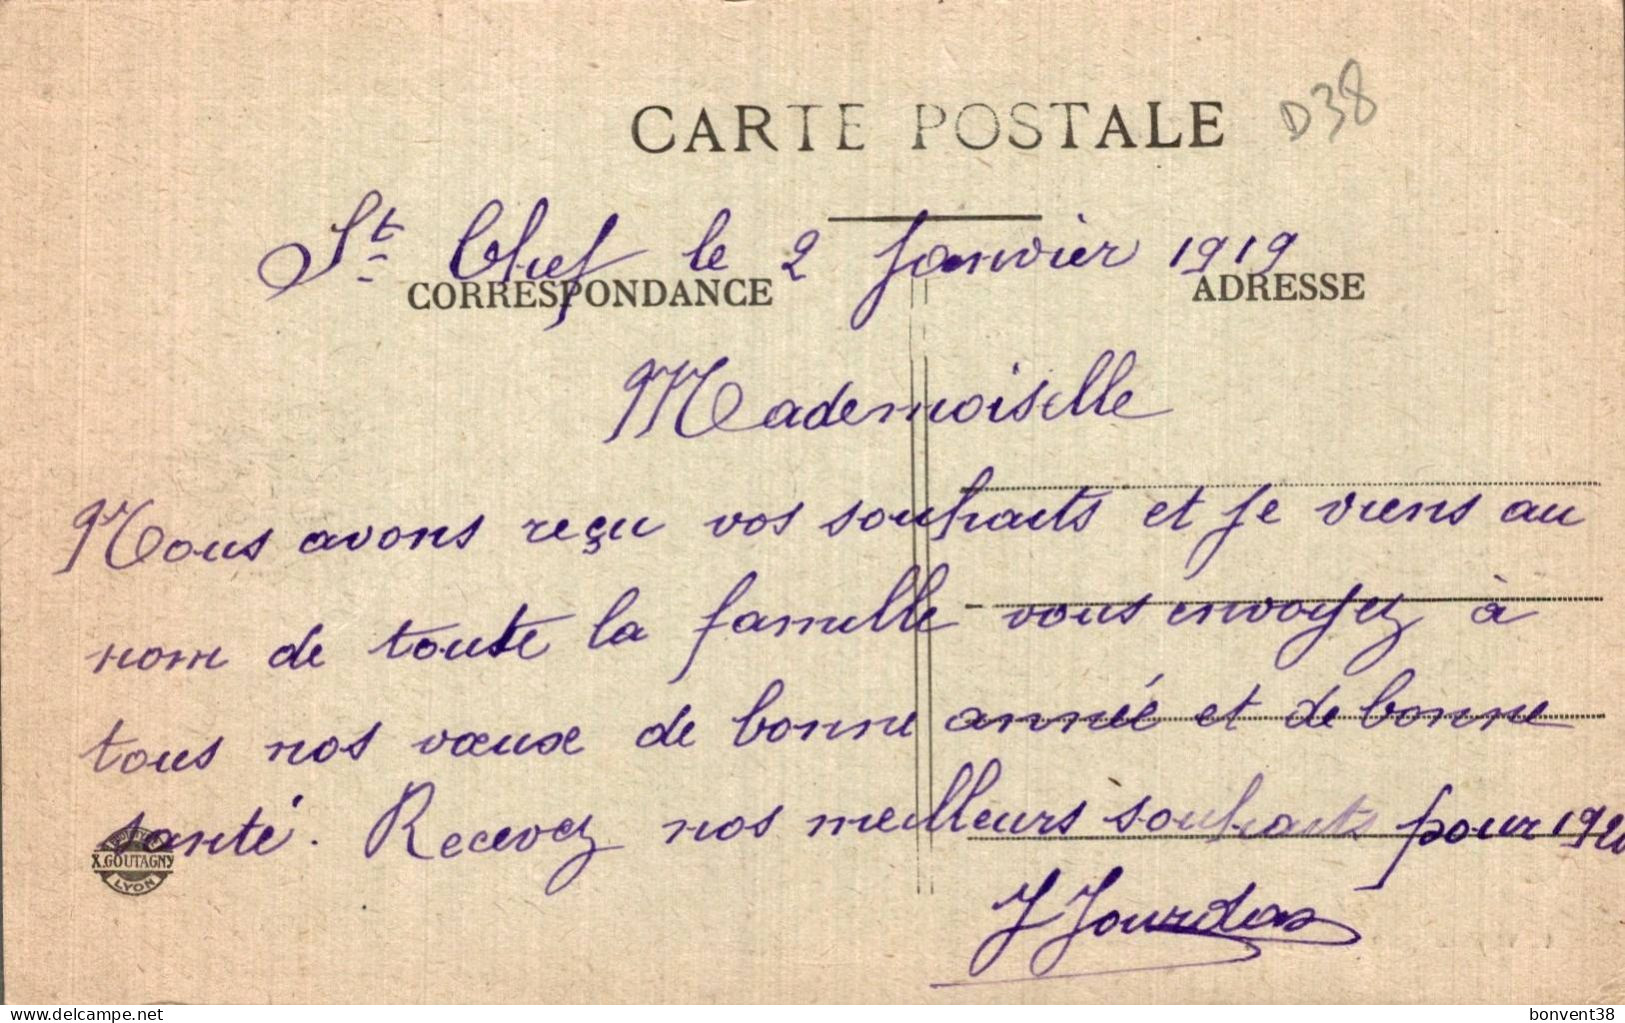 CARTE POSTALE
D38
St Chef le 2 Janvier 1919
CORRESPONDANCE
ADRESSE
Mademoiselle
Nous avons reçu vos souhaits et je viens au
nom de toute la famille vous envoyez à
tous nos vœux de bonne année et de bonne
santé. Recevez nos meilleurs souhaits pour 1920
J Jourdan
X.GOUTAGNY
LYON
delcampe.net
bonvent38